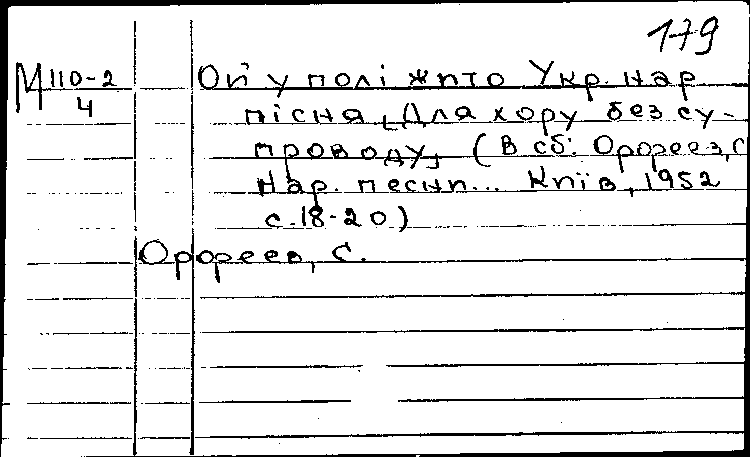 179
М 110-2
4
Ой у полі жито Укр. нар
пісня [Для хору без су-
проводу] (В сб: Орореев, С
Нар. песни... Київ, 1952
с. 18-20)
Орореев, С.